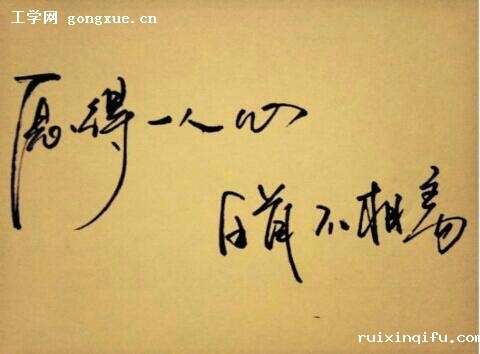 工学网 gongxue.cn
愿得一人心
白首不相离
ruixinqifu.com